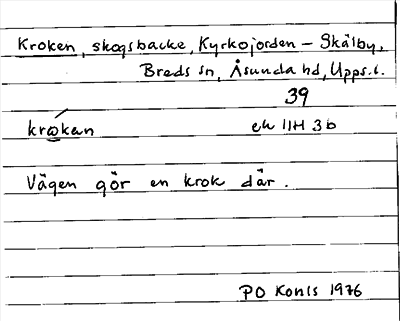 Kroken, skogsbacke, Kyrkojorden – Skälby,
Breds sn, Åsunda hd, Upps. l.
39
krώkan ek 11H 3b
Vägen gör en krok där.
PO Konls 1976